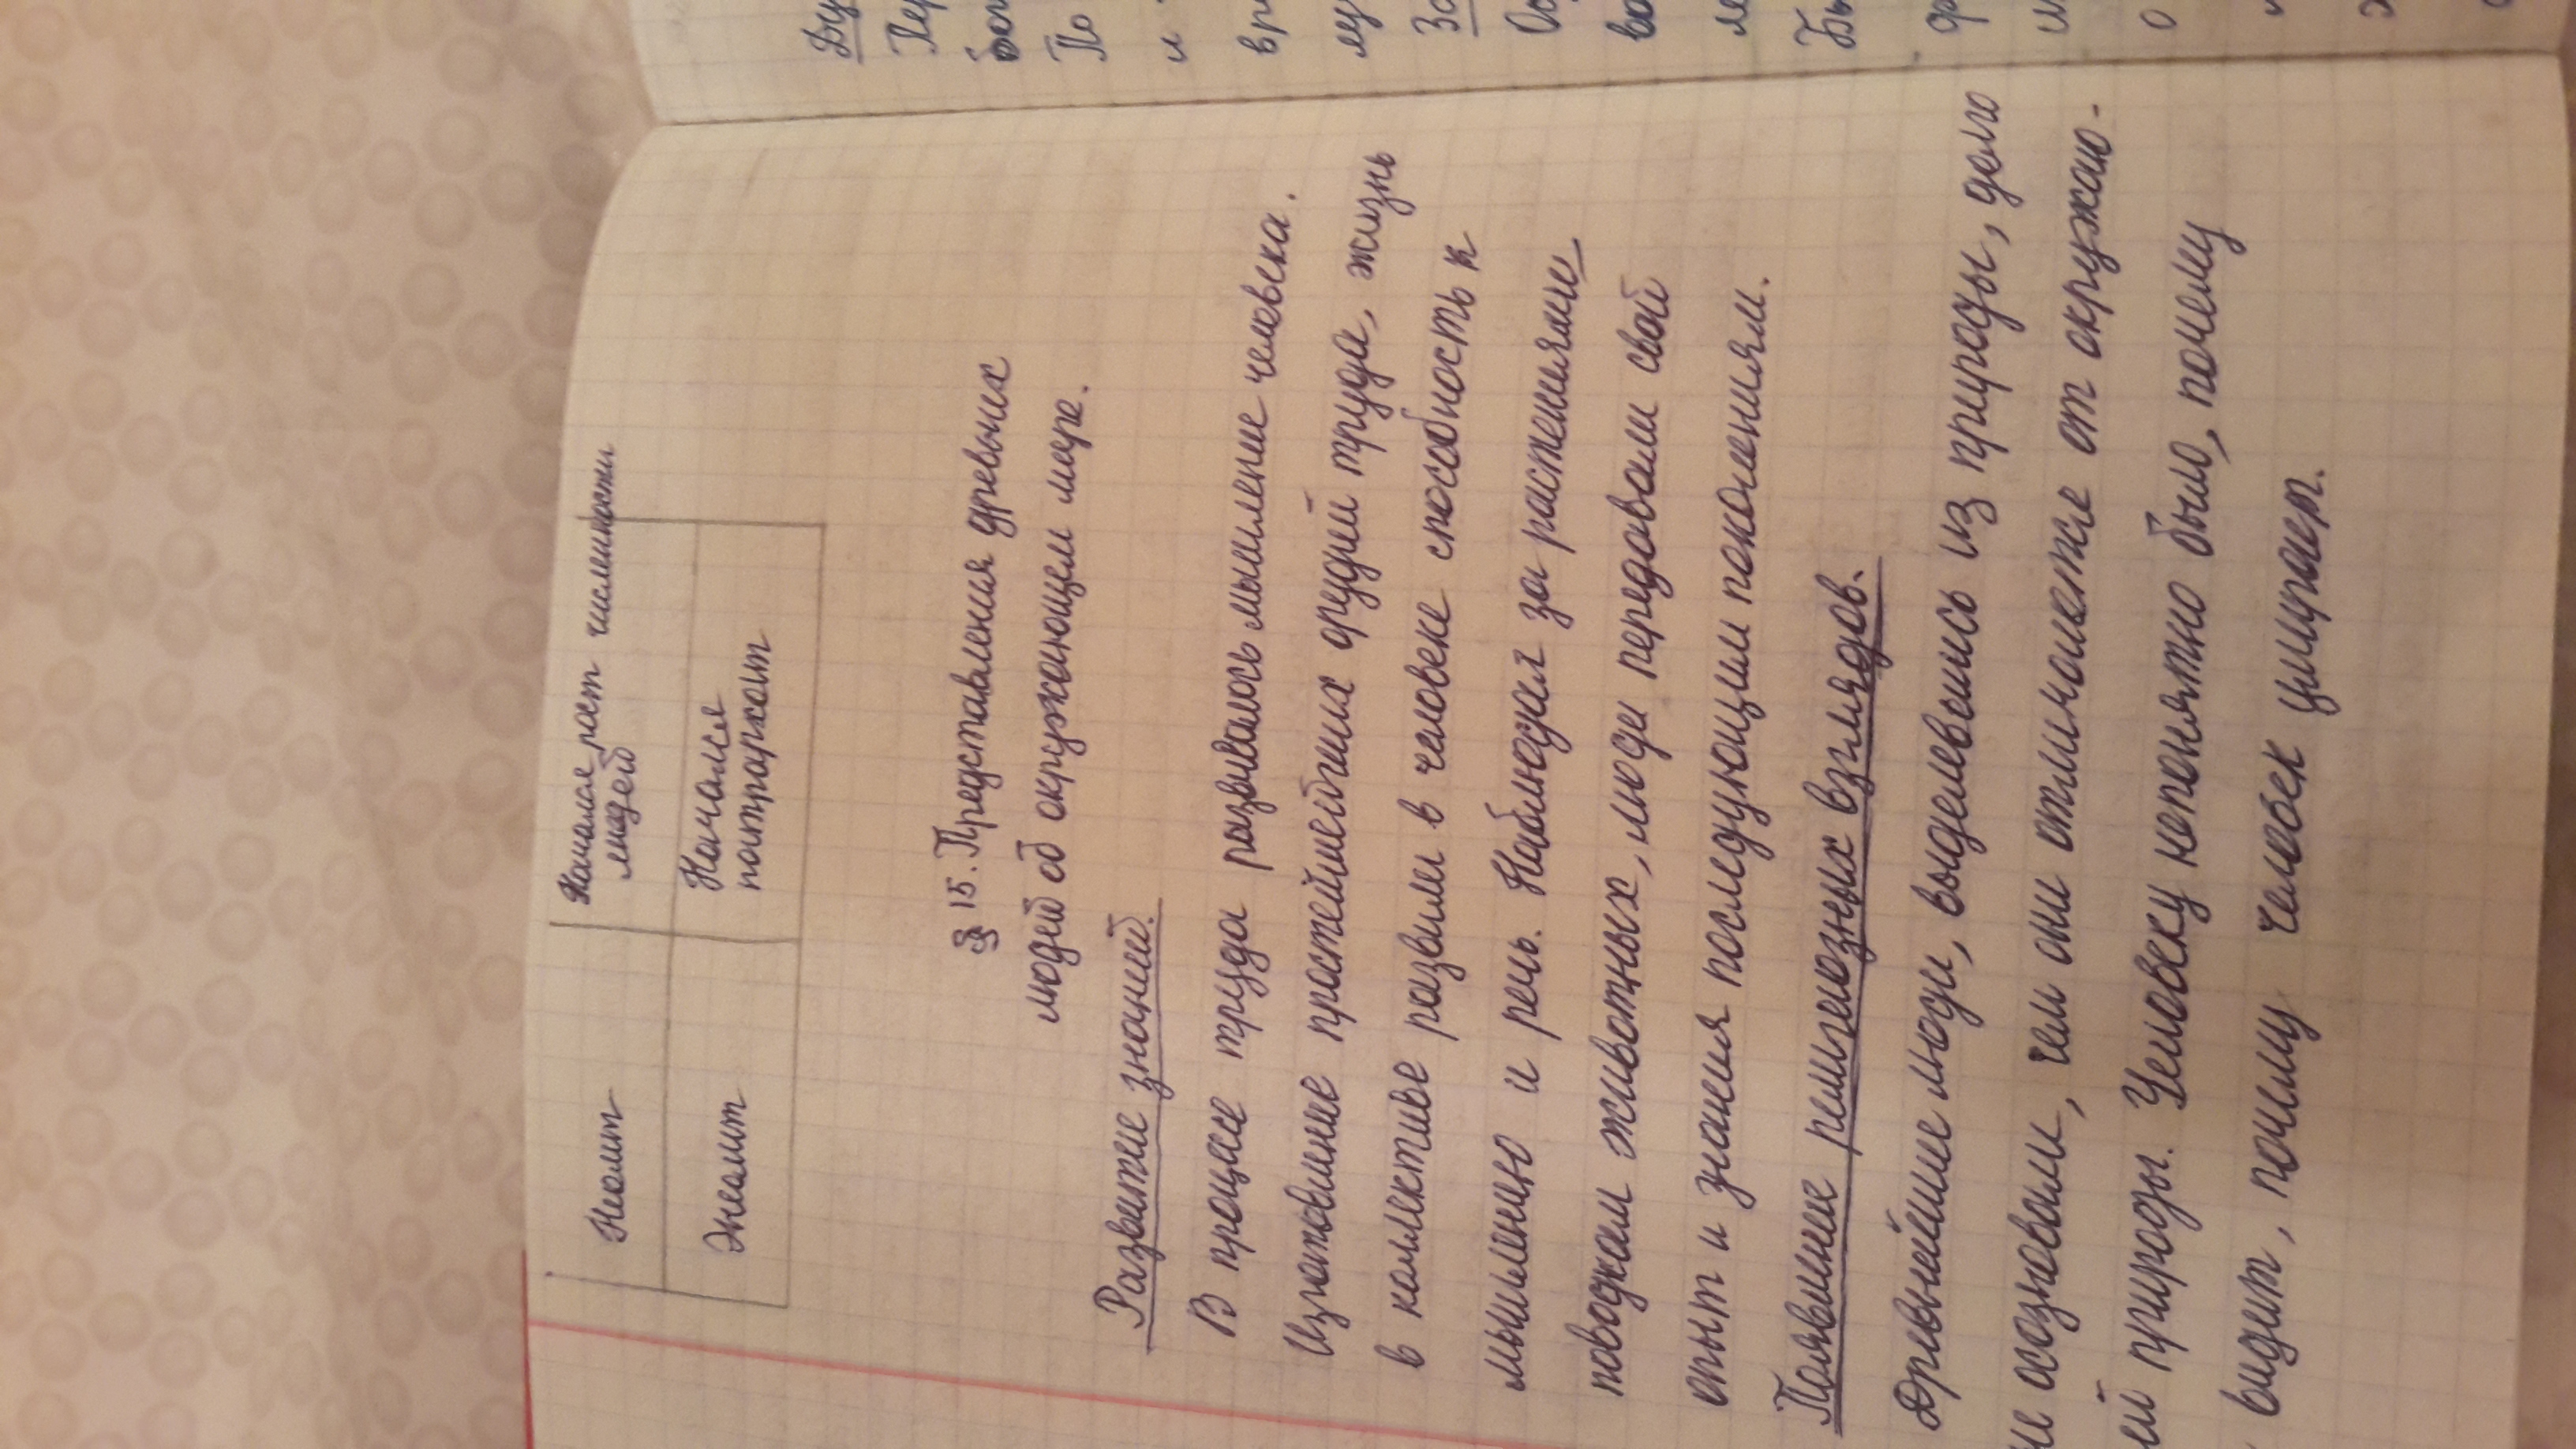 Неолит
Начался рост численности
людей
Энеолит
Начался
патриархат
§ 15. Представления древних
людей об окружающем мире.
Развитие знаний.
В процессе труда развивалось мышление человека.
Изготовление простейших орудий труда, жизнь
в коллективе развили в человеке способность к
мышлению и речь. Наблюдая за растениями,
поводкам животных, люди передавали свой
опыт и знания последующим поколениям.
Появление религиозных взглядов.
Древнейшие люди, выделевшись из природы, долго
не осознавали, чем они отличаются от окружаю-
ей природы. Человеку непонятно было, почему
видит, почему человек умирает.
Ду
Пер
бог
По
и
вр
му
За
Ос
во
ле
Бы